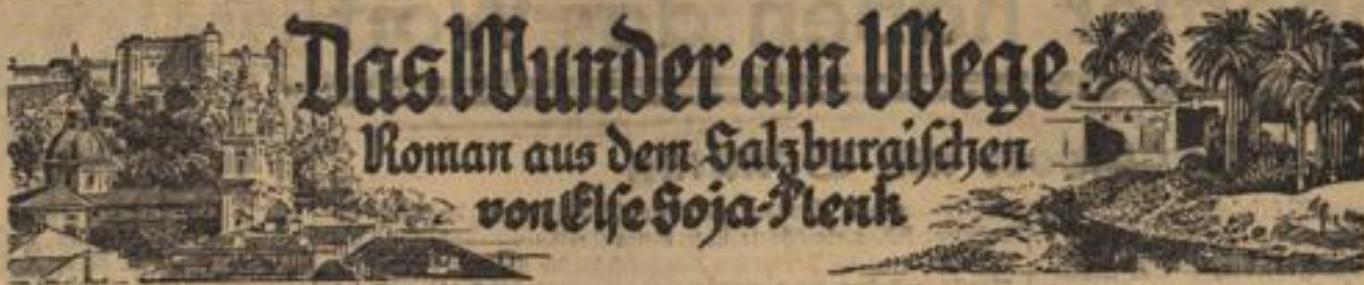 Das Wunder am Wege
Roman aus dem Salzburgischen
von Else Soja-Plenk